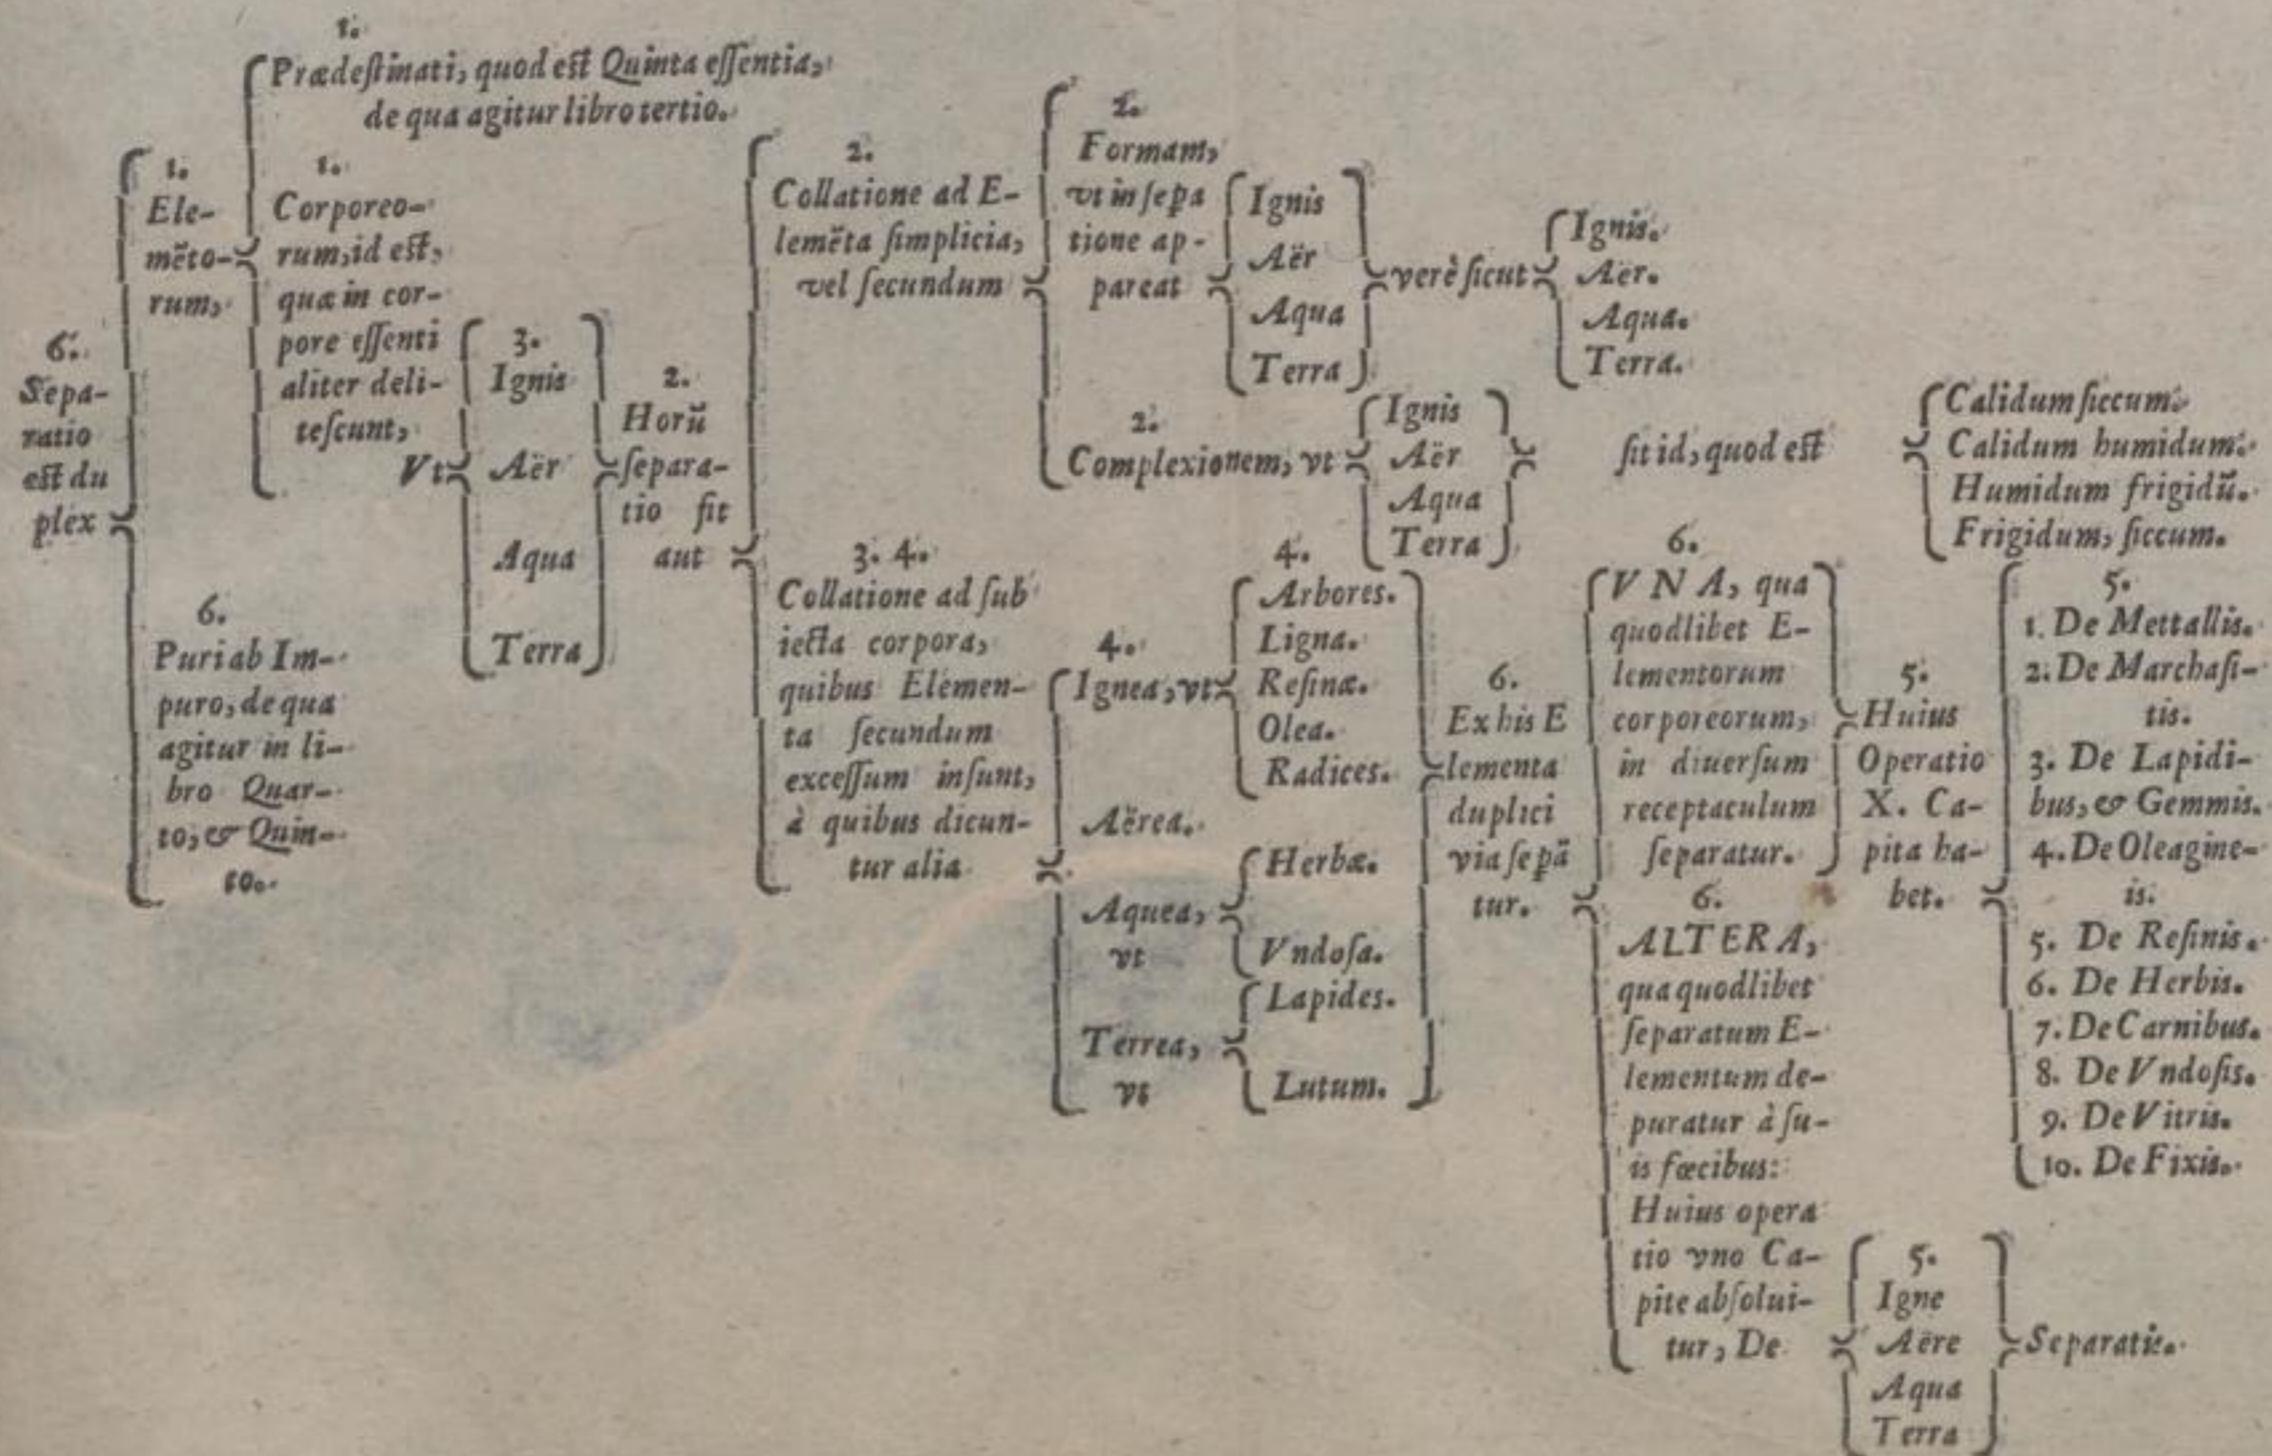 6.
Sepa-
ratio
est du
plex
1.
Ele-
mẽto-
rum,
1.
Prædeſtinati, quod eſt Quinta eſſentia,
de qua agitur libro tertio.
1.
Corporeo-
rum, id eſt,
quæ in cor-
pore eſſenti
aliter deli-
teſcunt,
Vt
3.
Ignis
Aër
Aqua
Terra
2.
Horũ
ſepara-
tio fit
aut
2.
Collatione ad E-
lemẽta ſimplicia,
vel ſecundum
2.
Formam,
vt in ſepa
tione ap-
pareat
Ignis
Aër
Aqua
Terra
verè ſicut
Ignis.
Aër.
Aqua.
Terra.
2.
Complexionem, vt
Ignis
Aër
Aqua
Terra
ſit id, quod eſt
Calidum ſiccum.
Calidum humidum.
Humidum frigidũ.
Frigidum, ſiccum.
3. 4.
Collatione ad ſub
iecta corpora,
quibus Elemen-
ta ſecundum
exceſſum inſunt,
à quibus dicun-
tur alia
4.
Ignea, vt
4.
Arbores.
Ligna.
Reſinæ.
Olea.
Radices.
Aërea.
Aquea,
vt
Herbæ.
Vndoſa.
Terrea,
vt
Lapides.
Lutum.
6.
Ex his E
lementa
duplici
via ſepã
tur.
6.
VNA, qua
quodlibet E-
lementorum
corporeorum,
in diuerſum
receptaculum
ſeparatur.
5.
Huius
Operatio
X. Ca-
pita ha-
bet.
5.
1. De Mettallis.
2. De Marchaſi-
tis.
3. De Lapidi-
bus, & Gemmis.
4. De Oleagine-
is.
5. De Reſinis.
6. De Herbis.
7. De Carnibus.
8. De Vndoſis.
9. De Vitris.
10. De Fixis.
6.
ALTERA,
qua quodlibet
ſeparatum E-
lementum de-
puratur à ſu-
is fœcibus:
Huius opera
tio vno Ca-
pite abſolui-
tur, De
5.
Igne
Aëre
Aqua
Terra
Separatis.
6.
Puri ab Im-
puro, de qua
agitur in li-
bro Quar-
to, & Quin-
to.